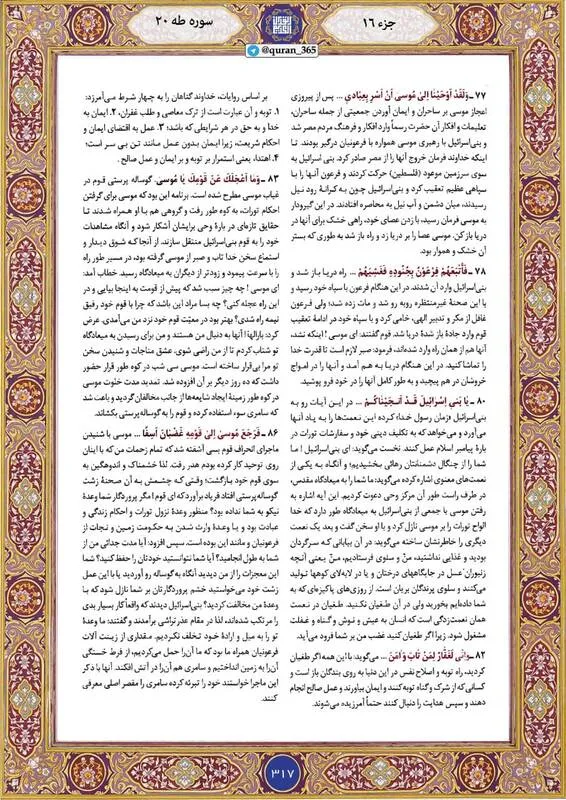 جزء ۱۶
سوره طه ۲۰
@quran_365
۷۷ ـ وَلَقَدْ أَوْحَيْنَا إِلَىٰ مُوسَىٰ أَنْ أَسْرِ بِعِبَادِي ... پس از پیروزی
اعجاز موسی بر ساحران و ایمان آوردن جمعیتی از جمله ساحران،
تعلیمات و افکار آن حضرت رسماً وارد افکار و فرهنگ مردم مصر شد
و بنی‌اسرائیل با رهبری موسی همواره با فرعونیان درگیر بودند. تا
اینکه خداوند فرمان خروج آنها را از مصر صادر کرد. بنی اسرائیل به
سوی سرزمین موعود (فلسطین) حرکت کردند و فرعون آنها را با
سپاهی عظیم تعقیب کرد و بنی‌اسرائیل چون به کرانهٔ رود نیل
رسیدند، میان دشمن و آب نیل به محاصره افتادند. در این گیرودار
به موسی فرمان رسید، با زدن عصای خود، راهی خشک برای آنها در
دریا باز کن. موسی عصا را بر دریا زد و راه باز شد به طوری که بستر
آن خشک و هموار بود.
۷۸ ـ فَأَتْبَعَهُمْ فِرْعَوْنُ بِجُنُودِهِ فَغَشِيَهُمْ ... راه دریا باز شد و
بنی‌اسرائیل وارد آن شدند. در این هنگام فرعون با سپاه خود رسید و
با این صحنهٔ غیرمنتظره روبه رو شد و مات زده شد؛ ولی فرعون
غافل از مکر و تدبیر الهی، خامی کرد و با سپاه خود در ادامهٔ تعقیب
قوم وارد جادهٔ باز شدهٔ دریا شد. قوم گفتند: ای موسی ! اینکه نشد،
آنها هم از همان راه وارد شده‌اند، فرمود: صبر لازم است تا قدرت خدا
را تماشا کنید. در این هنگام دریا به هم آمد و آنها را در امواج
خروشان در هم پیچید و به طور کامل آنها را در خود فرو پوشید.
۸۰ ـ يَا بَنِي إِسْرَائِيلَ قَدْ أَنجَيْنَاكُم ... در این آیات رو به
بنی‌اسرائیل (زمان رسول خدا) کرده این نعمت‌ها را به یاد آنها
می‌آورد و می‌خواهد که به تکلیف دینی خود و سفارشات تورات در
بارهٔ پیامبر اسلام عمل کنند. نخست می‌گوید: ای بنی‌اسرائیل ! ما
شما را از چنگال دشمنانتان رهائی بخشیدیم؛ و آنگاه به یکی از
نعمت‌های معنوی اشاره کرده می‌گوید: ما شما را به میعادگاه مقدس،
در طرف راست طور آن مرکز وحی دعوت کردیم. این آیه اشاره به
رفتن موسی با جمعی از بنی‌اسرائیل به میعادگاه طور دارد که خدا
الواح تورات را بر موسی نازل کرد و با او سخن گفت و بعد یک نعمت
دیگری را خاطرنشان ساخته می‌گوید: در آن بیابانی که سرگردان
بودید و غذایی نداشتید، منّ و سلوی فرستادیم، منّ یعنی آنچه
زنبوران عسل در جایگاههای درختان و یا در لابه‌لای کوهها تولید
می‌کنند و سلوی پرندگان بریان است. از روزی‌های پاکیزه‌ای که به
شما داده‌ایم بخورید ولی در آن طغیان نکنید. طغیان در نعمت
همان نعمت‌زدگی است که انسان به عیش و نوش و گناه و غفلت
مشغول شود. زیرا اگر طغیان کنید غضب من بر شما فرود می‌آید.
۸۲ ـ وَإِنِّي لَغَفَّارٌ لِّمَن تَابَ وَآمَنَ ... می‌گوید: با این همه اگر طغیان
کردید، راه توبه و اصلاح نفس در این دنیا به روی بندگان باز است و
کسانی که از شرک و گناه توبه کنند و ایمان بیاورند و عمل صالح انجام
دهند و سپس هدایت را دنبال کنند حتماً آمرزیده می‌شوند.
بر اساس روایات، خداوند گناهان را به چهار شرط می‌آمرزد:
۱. توبه و آن عبارت است از ترک معاصی و طلب غفران، ۲. ایمان به
خدا و به حق در هر شرایطی که باشد؛ ۳. عمل به اقتضای ایمان و
احکام شریعت، زیرا ایمان بدون عمل مانند تن بی سر است؛
۴. اهتدا، یعنی استمرار بر توبه و بر ایمان و عمل صالح .
۸۳ ـ وَمَا أَعْجَلَكَ عَن قَوْمِكَ يَا مُوسَىٰ. گوساله پرستی قوم در
غیاب موسی مطرح شده است. برنامه این بود که موسی برای گرفتن
احکام تورات، به کوه طور رفت و گروهی هم با او همراه شدند تا
حقایق تازه‌ای در بارهٔ وحی برایشان آشکار شود و آنگاه مشاهدات
خود را به قوم بنی‌اسرائیل منتقل سازند. از آنجا که شوق دیدار و
استماع سخن خدا تاب و صبر از موسی گرفته بود، در مسیر طور راه
را با سرعت پیمود و زودتر از دیگران به میعادگاه رسید. خطاب آمد:
ای موسی ! چه چیز سبب شد که پیش از قومت به اینجا بیایی و در
این راه عجله کنی؟ چه بسا مراد این باشد که چرا با قوم خود رفیق
نیمه راه شدی؟ بهتر بود در معیّت قوم خود نزد من می‌آمدی. عرض
کرد: بارالها ! آنها به دنبال من هستند و من برای رسیدن به میعادگاه
تو شتاب کردم تا از من راضی شوی. عشق مناجات و شنیدن سخن
تو مرا بی‌قرار ساخته است. موسی سی شب در کوه طور قرار حضور
داشت که ده روز دیگر بر آن افزوده شد. تمدید مدت خلوت موسی
در کوه طور زمینهٔ ایجاد شایعه‌ها از جانب مخالفان گردید و باعث شد
که سامری سوء استفاده کرده و قوم را به گوساله‌پرستی بکشاند.
۸۶ ـ فَرَجَعَ مُوسَىٰ إِلَىٰ قَوْمِهِ غَضْبَانَ أَسِفًا ... موسی با شنیدن
ماجرای انحراف قوم بسی آشفته شد که تمام زحمات من که با اینان
روی توحید کار کرده بودم هدر رفت. لذا خشمناک و اندوهگین به
سوی قوم خود بازگشت؛ وقتی که چشمش به آن صحنهٔ زشت
گوساله‌پرستی افتاد فریاد برآورد که ای قوم! مگر پروردگار شما وعدهٔ
نیکو به شما نداده بود؟ منظور وعدهٔ نزول تورات و احکام زندگی و
عبادت بود و یا وعدهٔ وارث شدن به حکومت زمین و نجات از
فرعونیان و مانند این بوده است. سپس افزود: آیا مدت جدائی من از
شما به طول انجامید؟ آیا شما نتوانستید خودتان را حفظ کنید؟ شما
این معجزات را از من دیدید آنگاه به گوساله رو آوردید یا با این عمل
زشت خود می‌خواستید خشم پروردگارتان بر شما نازل شود که با
وعدهٔ من مخالفت کردید؟ بنی‌اسرائیل دیدند که واقعاً کار بسیار بدی
را مرتکب شده‌اند، لذا در مقام عذرتراشی برآمدند و گفتند: ما وعدهٔ
تو را به میل و ارادهٔ خود تخلف نکردیم. مقداری از زینت آلات
فرعونیان همراه ما بود که ما آن را حمل می‌کردیم، از فرط خستگی
آن را به زمین انداختیم و سامری هم آن را در آتش افکند. آنها با ذکر
این ماجرا خواستند خود را تبرئه کرده سامری را مقصر اصلی معرفی
کنند.
۳۱۷